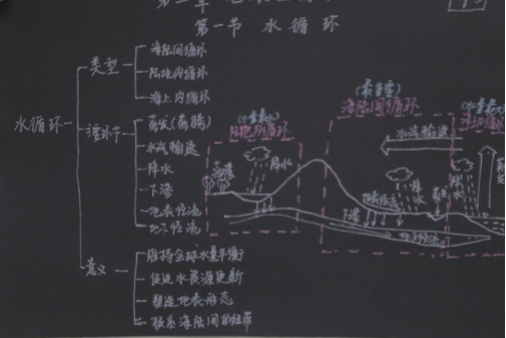 第一节 水循环
水循环
类型
海陆间循环
陆地内循环
海上内循环
蒸发(蒸腾)
水汽输送
降水
下渗
地表径流
地下径流
意义
维持全球水量平衡
促进水资源更新
塑造地表形态
联系海陆间的纽带
(水量最少)
陆地内循环
降水
(最重要)
海陆间循环
水汽输送
降水
下渗
地表径流
地下径流
(水量最大)
降水